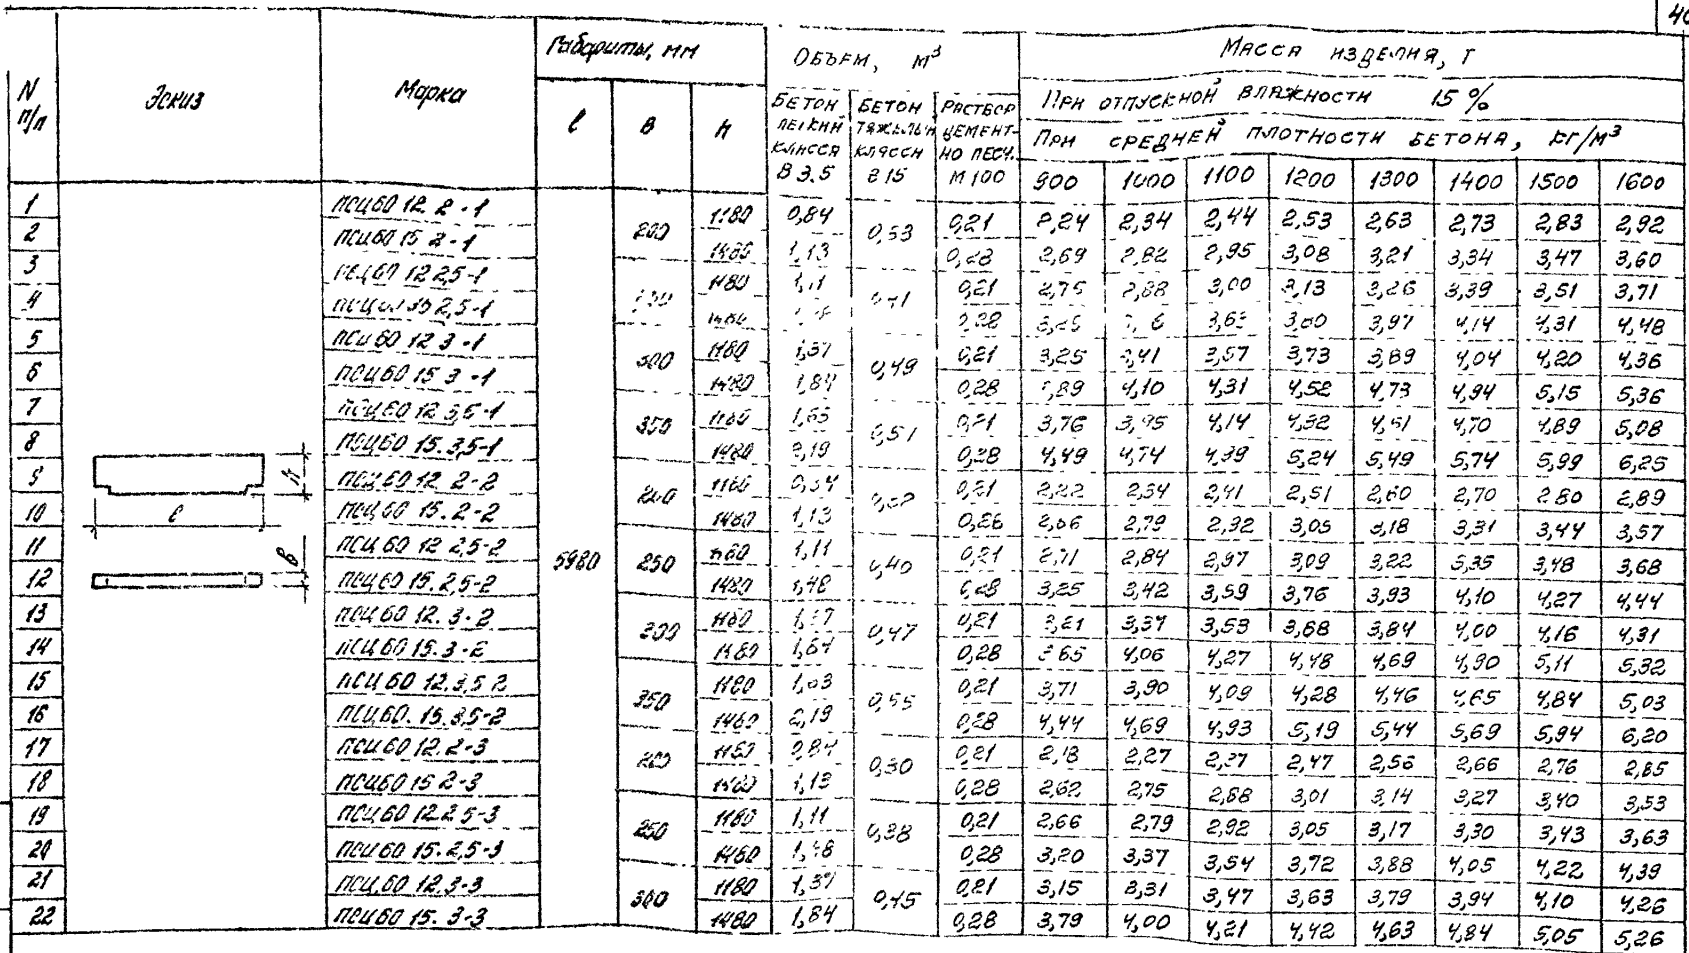 40
N п/п Эскиз Марка Габариты, мм ОБЪЕМ, М³ МАССА ИЗДЕЛИЯ, Т
ℓ В h БЕТОН ЛЕГКИЙ КЛАССА В 3.5 БЕТОН ТЯЖЕЛЫЙ КЛАССА В 15 РАСТВОР ЦЕМЕНТНО ПЕСЧ. М 100
ПРИ ОТПУСКНОЙ ВЛАЖНОСТИ 15 %
ПРИ СРЕДНЕЙ ПЛОТНОСТИ БЕТОНА, КГ/М³
900 1000 1100 1200 1300 1400 1500 1600
1 ПСЦ60 12. 2 -1 200 1180 0,84 0,53 0,21 2,24 2,34 2,44 2,53 2,63 2,73 2,83 2,92
2 ПСЦ60 15 2-1 1480 1,13 0,28 2,69 2,82 2,95 3,08 3,21 3,34 3,47 3,60
3 12 2,5-1 1180 1,11 0,21 2,75 2,88 3,00 3,13 3,26 3,39 3,51 3,71
4 2,5-1 0,28 3,80 3,97 4,14 4,31 4,48
5 ПСЦ60 12 3 -1 300 1180 1,37 0,49 0,21 3,25 3,41 3,57 3,73 3,89 4,04 4,20 4,36
6 ПСЦ60 15 3 -1 1480 1,84 0,28 3,89 4,10 4,31 4,52 4,73 4,94 5,15 5,36
7 ПСЦ60 12 3,5-1 350 1180 1,63 0,51 0,21 3,76 3,95 4,14 4,32 4,51 4,70 4,89 5,08
8 ПСЦ60 15. 3,5-1 1480 2,19 0,28 4,49 4,74 4,99 5,24 5,49 5,74 5,99 6,25
9 ПСЦ60 12. 2-2 200 1180 0,21 2,22 2,41 2,51 2,60 2,70 2,80 2,89
10 ПСЦ60 15. 2-2 1480 1,13 2,66 2,79 3,05 3,18 3,31 3,44 3,57
11 ПСЦ 60 12 2,5-2 5980 250 1180 1,11 0,40 0,21 2,71 2,84 2,97 3,09 3,22 3,35 3,48 3,68
12 ПСЦ 60 15. 2,5-2 1480 1,48 0,28 3,25 3,42 3,59 3,76 3,93 4,10 4,27 4,44
13 ПСЦ60 12. 3-2 300 1180 1,37 0,47 0,21 3,21 3,37 3,53 3,68 3,84 4,00 4,16 4,31
14 ПСЦ60 15. 3-2 1480 0,28 4,06 4,27 4,48 4,69 4,90 5,11 5,32
15 ПСЦ60 12.3,5 2 350 1180 1,63 0,55 0,21 3,71 3,90 4,09 4,28 4,46 4,65 4,84 5,03
16 ПСЦ60. 15. 3,5-2 1480 2,19 0,28 4,44 4,69 4,93 5,19 5,44 5,69 5,94 6,20
17 ПСЦ60 12. 2-3 200 1180 0,84 0,30 0,21 2,18 2,27 2,37 2,47 2,56 2,66 2,76 2,85
18 ПСЦ60 15 2-3 1480 1,13 0,28 2,62 2,75 2,88 3,01 3,14 3,27 3,40 3,53
19 ПСЦ60 12.2 5-3 250 1180 1,11 0,38 0,21 2,66 2,79 2,92 3,05 3,17 3,30 3,43 3,63
20 ПСЦ60 15. 2,5-3 1480 1,48 0,28 3,20 3,37 3,54 3,72 3,88 4,05 4,22 4,39
21 ПСЦ60 12.3-3 300 1180 1,37 0,45 0,21 3,15 3,31 3,47 3,63 3,79 3,94 4,10 4,26
22 ПСЦ60 15. 3-3 1480 1,84 0,28 3,79 4,00 4,21 4,42 4,63 4,84 5,05 5,26
h
ℓ
В